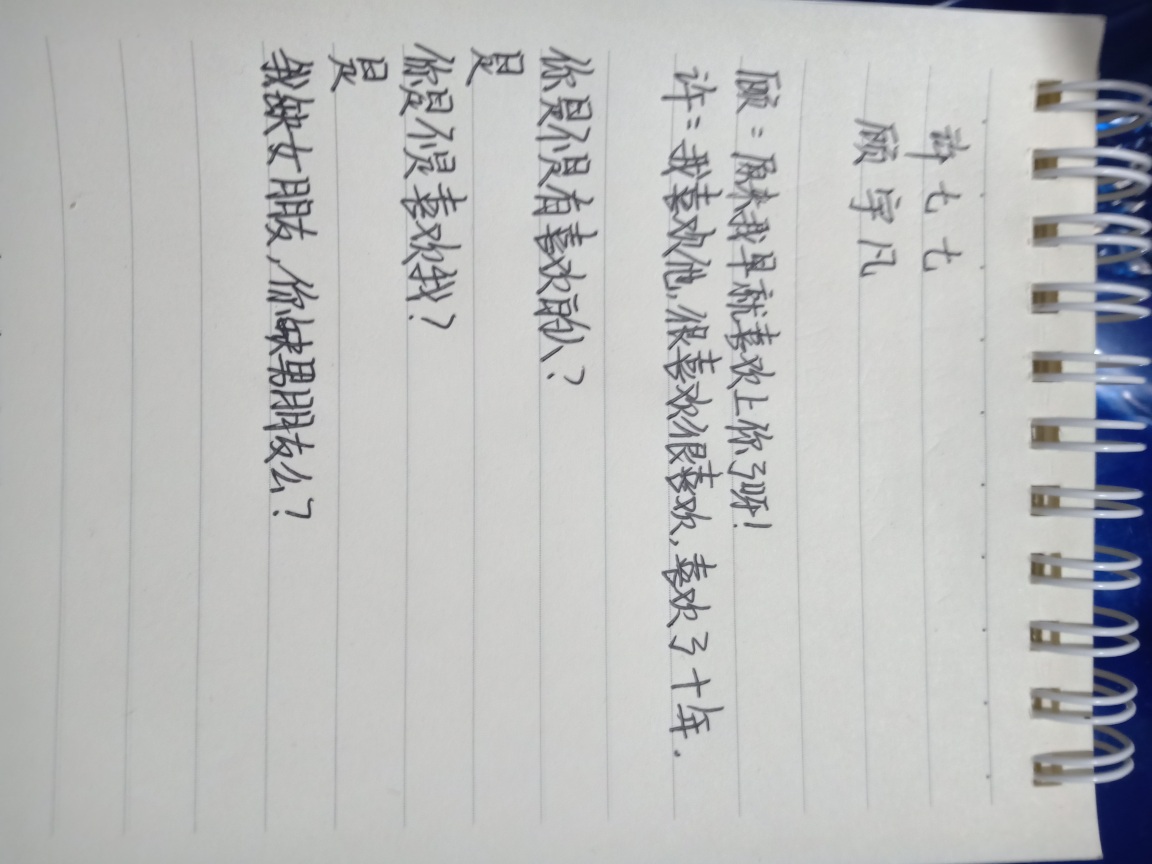 许七七
顾宇凡
顾：原来我早就喜欢上你了呀！
许：我喜欢他，很喜欢很喜欢，喜欢了十年．
你是不是有喜欢的人？
是
你是不是喜欢我？
是
我缺女朋友，你缺男朋友么？